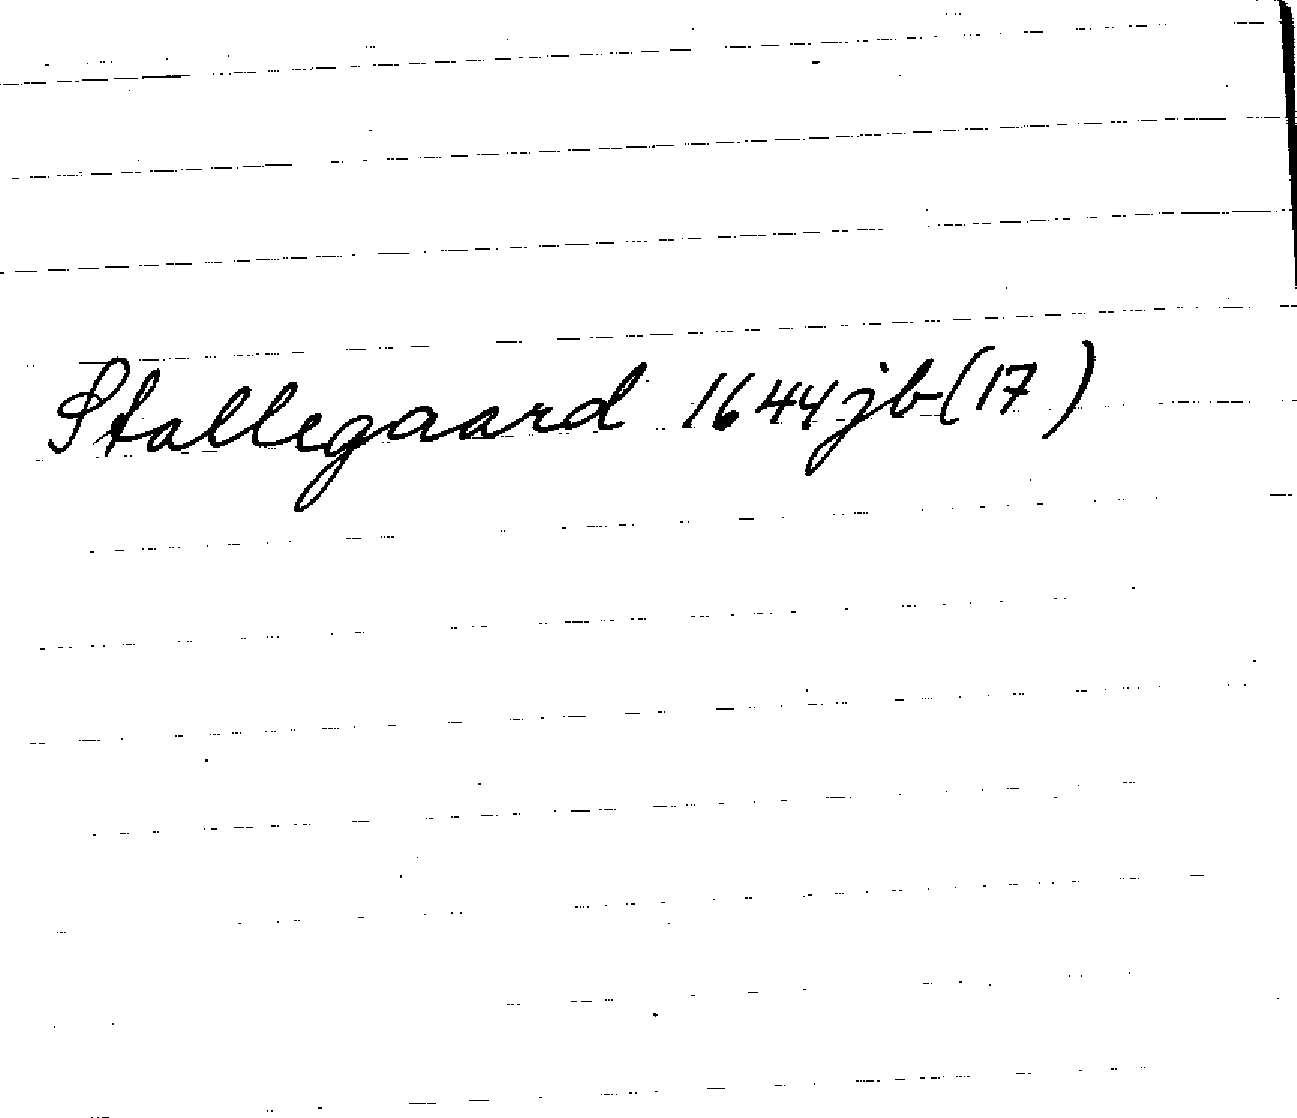 Stallegaard 1644 jb (17)